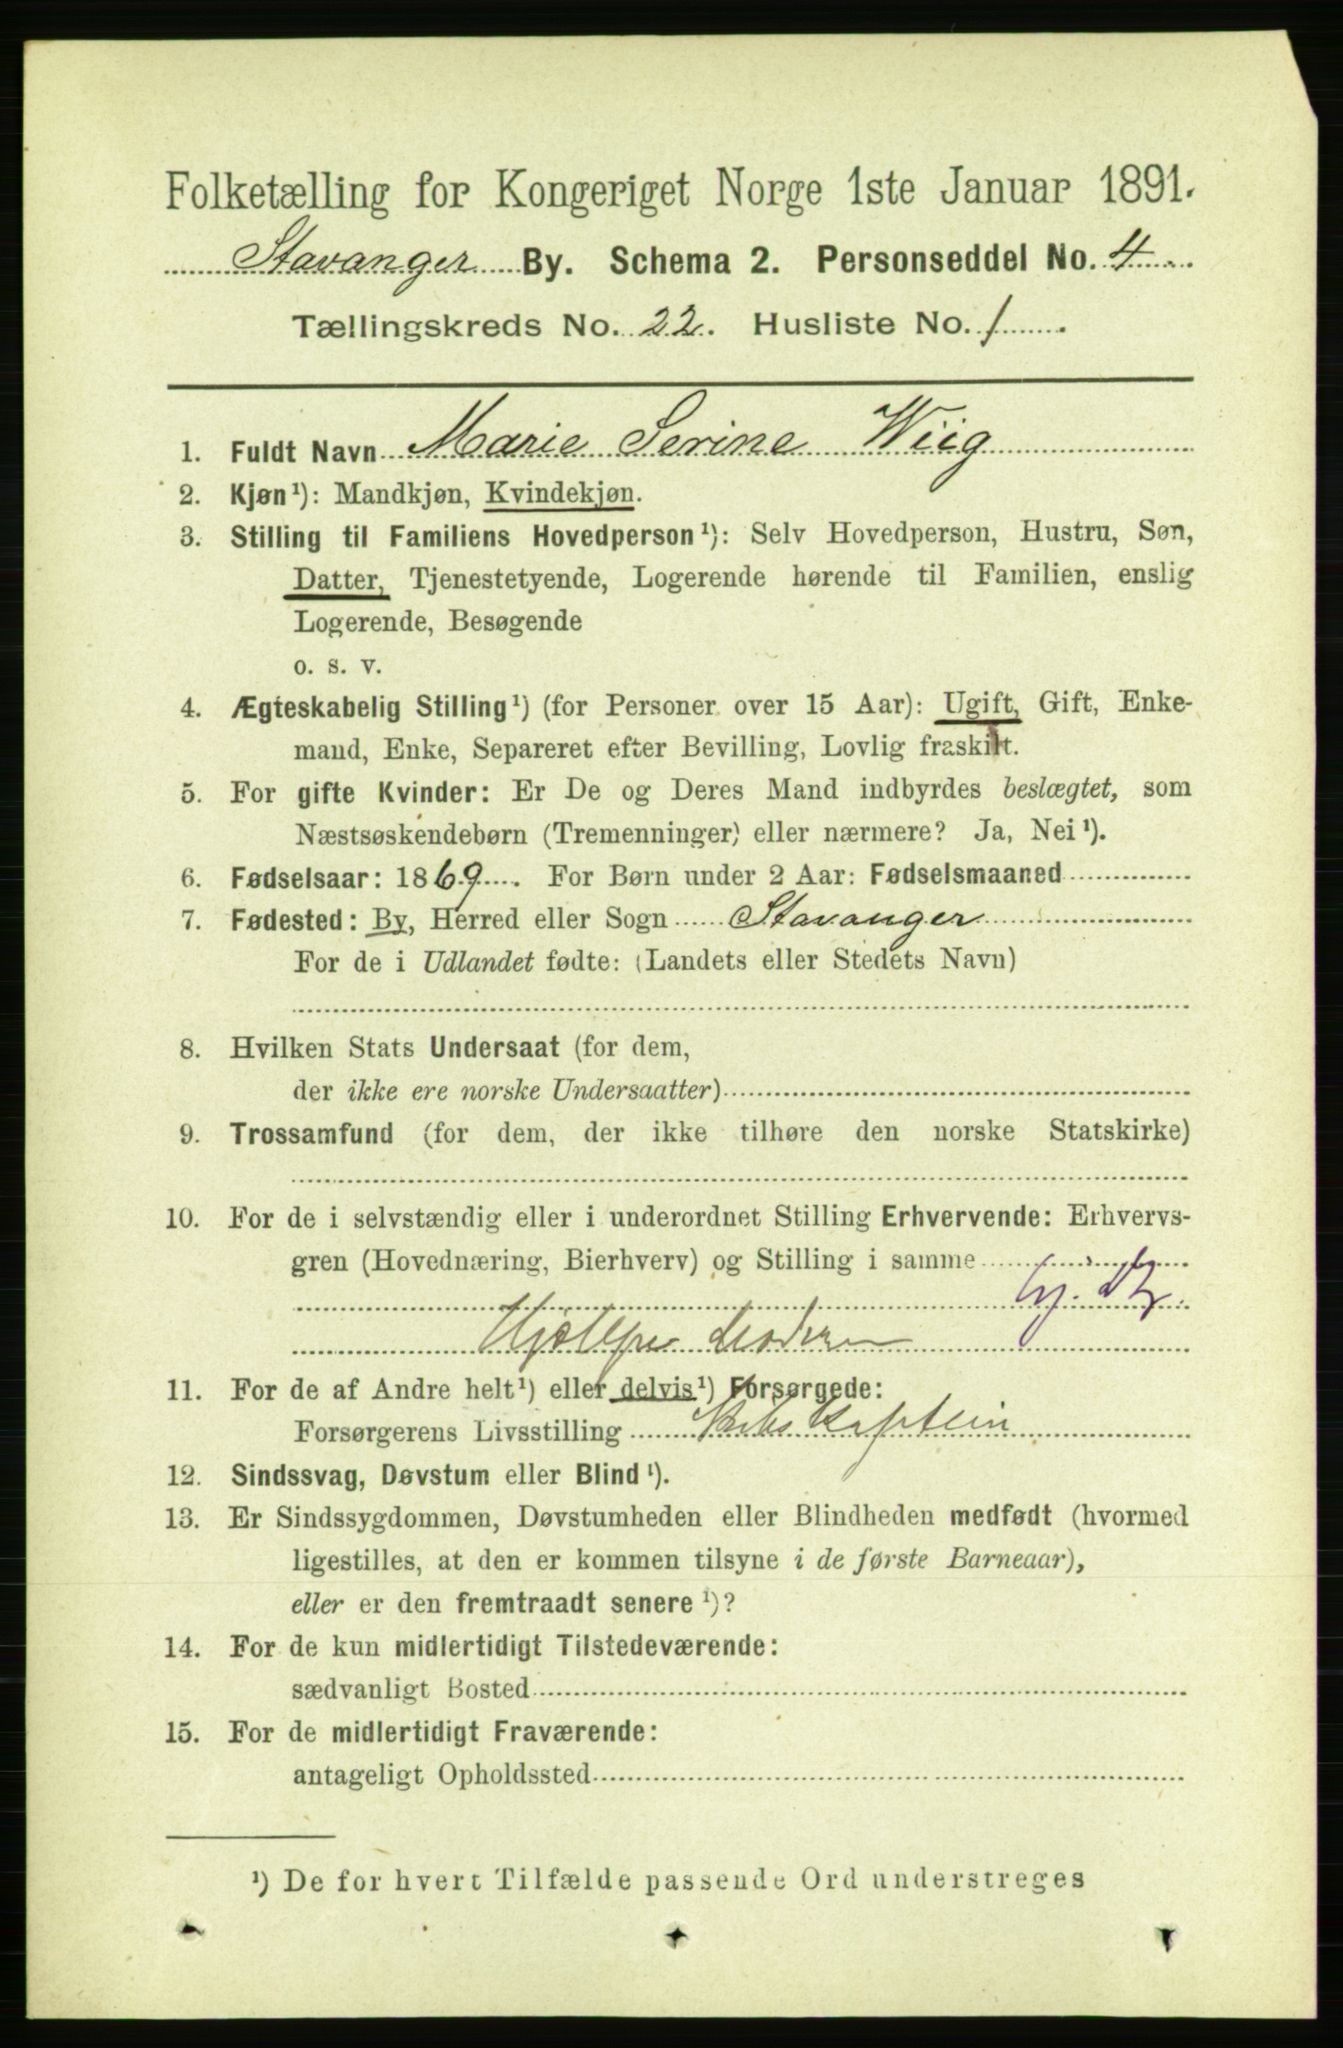 Folketælling for Kongeriget Norge 1ste Januar 1891.
Stavanger By. Schema 2. Personseddel No. 4
Tællingskreds No. 22. Husliste No. 1
1. Fuldt Navn Marie Serine Wiig
2. Kjøn¹): Mandkjøn, Kvindekjøn.
3. Stilling til Familiens Hovedperson¹): Selv Hovedperson, Hustru, Søn,
Datter, Tjenestetyende, Logerende hørende til Familien, enslig
Logerende, Besøgende
o. s. v.
4. Ægteskabelig Stilling¹) (for Personer over 15 Aar): Ugift, Gift, Enke-
mand, Enke, Separeret efter Bevilling, Lovlig fraskilt.
5. For gifte Kvinder: Er De og Deres Mand indbyrdes beslægtet, som
Næstsøskendebørn (Tremenninger) eller nærmere? Ja, Nei¹).
6. Fødselsaar: 1869. For Børn under 2 Aar: Fødselsmaaned
7. Fødested: By, Herred eller Sogn Stavanger
For de i Udlandet fødte: (Landets eller Stedets Navn)
8. Hvilken Stats Undersaat (for dem,
der ikke ere norske Undersaatter)
9. Trossamfund (for dem, der ikke tilhøre den norske Statskirke)
10. For de i selvstændig eller i underordnet Stilling Erhvervende: Erhvervs-
gren (Hovednæring, Bierhverv) og Stilling i samme
Hjælper Moderen
11. For de af Andre helt¹) eller delvis¹) Forsørgede:
Forsørgerens Livsstilling Skibskaptein
12. Sindssvag, Døvstum eller Blind¹).
13. Er Sindssygdommen, Døvstumheden eller Blindheden medfødt (hvormed
ligestilles, at den er kommen tilsyne i de første Barneaar),
eller er den fremtraadt senere¹)?
14. For de kun midlertidigt Tilstedeværende:
sædvanligt Bosted
15. For de midlertidigt Fraværende:
antageligt Opholdssted
¹) De for hvert Tilfælde passende Ord understreges